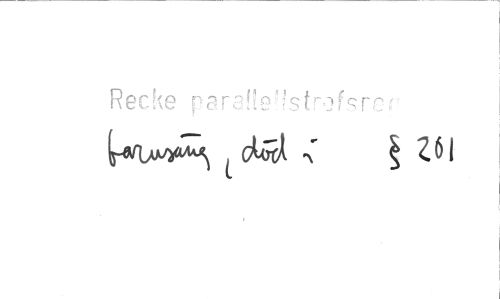 Recke parallellstrofsreg
barnsäng, död i § 201